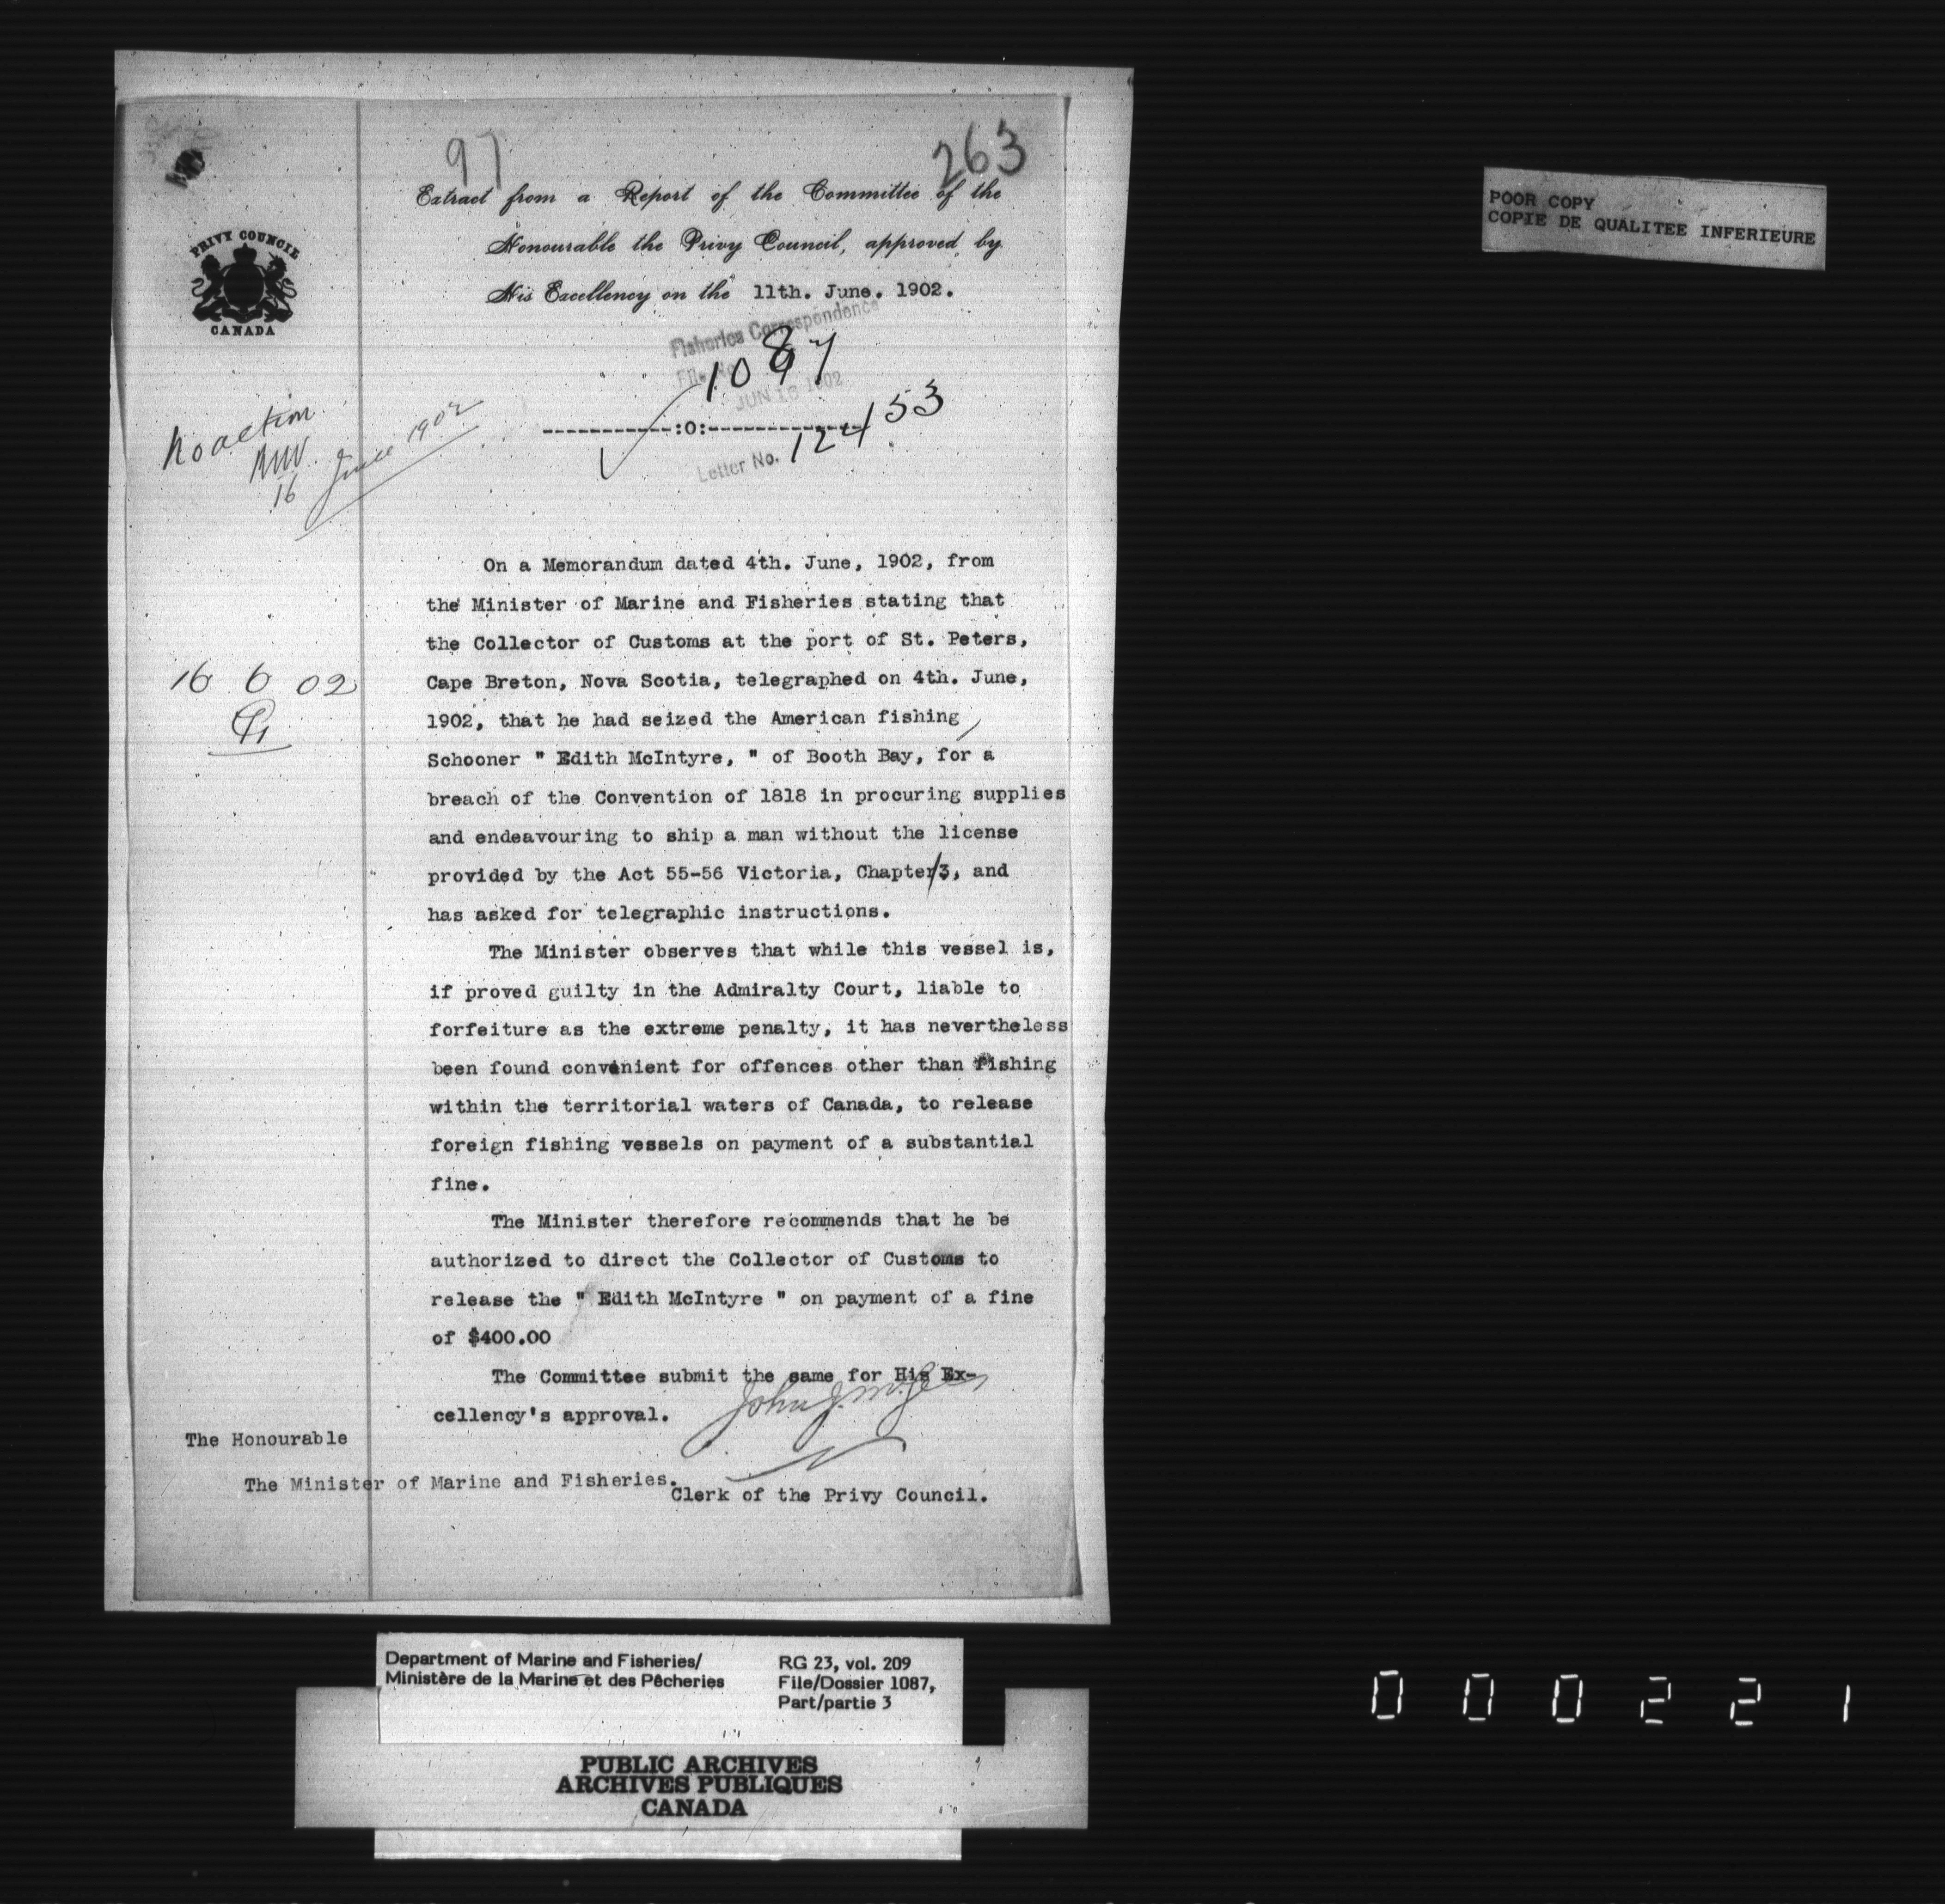 97
263
Extract from a Report of the Committee of the
Honourable the Privy Council, approved by
His Excellency on the 11th. June. 1902.
PRIVY COUNCIL
CANADA
Fisheries Correspondence
File No. 1087
JUN 16 1902
-----------:o:-----------
Letter No. 12453
No action
16 June 1902
On a Memorandum dated 4th. June, 1902, from
the Minister of Marine and Fisheries stating that
the Collector of Customs at the port of St. Peters,
Cape Breton, Nova Scotia, telegraphed on 4th. June,
1902, that he had seized the American fishing
Schooner " Edith McIntyre, " of Booth Bay, for a
breach of the Convention of 1818 in procuring supplies
and endeavouring to ship a man without the license
provided by the Act 55-56 Victoria, Chapter/3, and
has asked for telegraphic instructions.
16 6 02
The Minister observes that while this vessel is,
if proved guilty in the Admiralty Court, liable to
forfeiture as the extreme penalty, it has nevertheless
been found convenient for offences other than fishing
within the territorial waters of Canada, to release
foreign fishing vessels on payment of a substantial
fine.
The Minister therefore recommends that he be
authorized to direct the Collector of Customs to
release the " Edith McIntyre " on payment of a fine
of $400.00
The Committee submit the same for His Ex-
cellency's approval.
John J. McGee
The Honourable
The Minister of Marine and Fisheries.
Clerk of the Privy Council.
POOR COPY
COPIE DE QUALITEE INFERIEURE
Department of Marine and Fisheries/
Ministère de la Marine et des Pêcheries
RG 23, vol. 209
File/Dossier 1087,
Part/partie 3
PUBLIC ARCHIVES
ARCHIVES PUBLIQUES
CANADA
000221